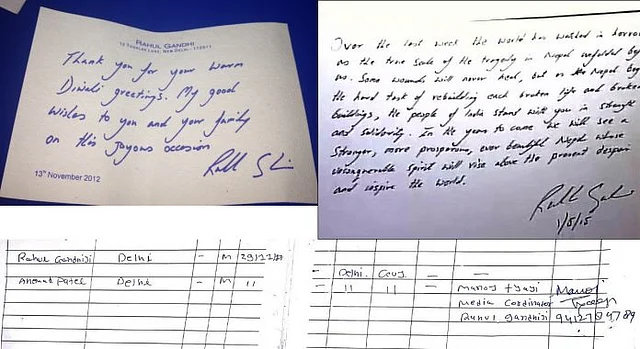 RAHUL GANDHI
12 TUGHLAK LANE, NEW DELHI - 110011
Thank you for your warm
Diwali greetings. My good
wishes to you and your family
on this joyous occasion
13th November 2012
Over the last week the world has watched in horror
as the true scale of the tragedy in Nepal unfolded
us. Some wounds will never heal, but as the Nepal
the hard task of rebuilding each broken life and
buildings, the people of India stand with you in strength
and solidarity. In the years to come we will see a
stronger, more prosperous, ever beautiful Nepal whose
spirit will rise above the present despair
and inspire the world.
1/5/15
Rahul Gandhiji Delhi - M
Ahemat Patel Delhi - M 11
- Delhi. Cong. - -
- 11 11 - Manoj Tyagi Manoj
Media Cordinator Tyagi
Rahul Gandhiji